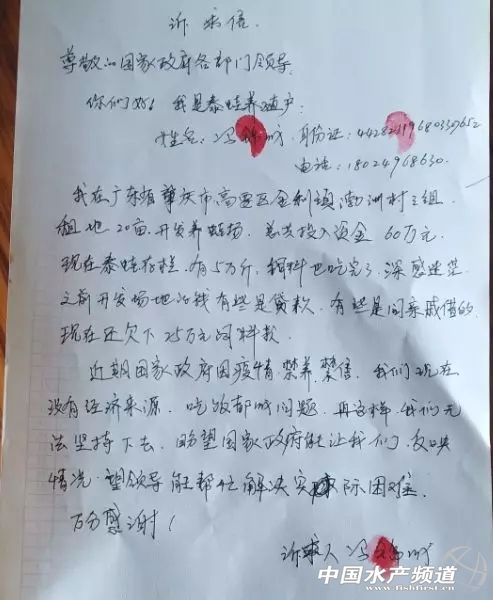 诉求信.
尊敬的国家政府各部门领导:
你们好! 我是泰蛙养殖户:
姓名: 冯锦 身份证:
电话: 18024968630.
我在广东省肇庆市高要区金利镇渤洲村三组
租地20亩.开发养蛙场. 总共投入资金60万元.
现在泰蛙存栏.有5万斤,饲料也吃完了,深感迷茫.
之前开发场地的钱有些是贷款.有些是问亲戚借的.
现在还欠下25万元饲料款.
近期国家政府因疫情.禁养.禁售.我们现在
没有经济来源.吃饭都成问题.再这样我们无
法坚持下去.盼望国家政府能让我们.反映
情况.望领导能帮忙解决实际困难.
万分感谢!
诉求人 冯锦
中国水产频道
www.fishfirst.cn